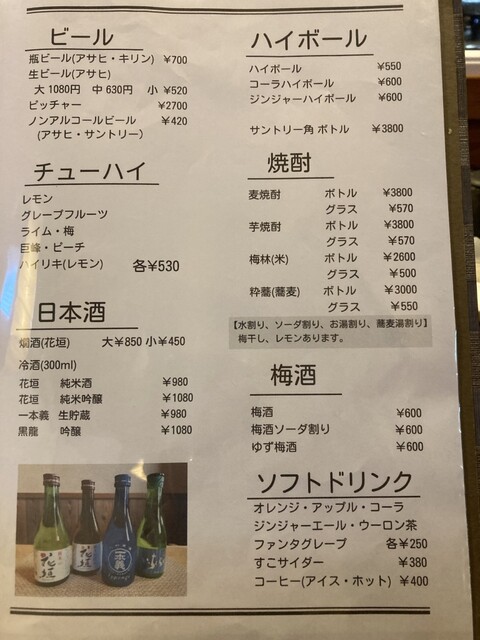 ビール
瓶ビール(アサヒ・キリン) ¥700
生ビール(アサヒ)
大 1080円 中 630円 小 ¥520
ピッチャー ¥2700
ノンアルコールビール ¥420
(アサヒ・サントリー)
チューハイ
レモン
グレープフルーツ
ライム・梅
巨峰・ピーチ
ハイリキ(レモン) 各¥530
日本酒
燗酒(花垣) 大¥850 小¥450
冷酒(300ml)
花垣 純米酒 ¥980
花垣 純米吟醸 ¥1080
一本義 生貯蔵 ¥980
黒龍 吟醸 ¥1080
花垣
花垣
一本義
ハイボール
ハイボール ¥550
コーラハイボール ¥600
ジンジャーハイボール ¥600
サントリー角 ボトル ¥3800
焼酎
麦焼酎 ボトル ¥3800
グラス ¥570
芋焼酎 ボトル ¥3800
グラス ¥570
梅林(米) ボトル ¥2600
グラス ¥500
粋蕎(蕎麦) ボトル ¥3000
グラス ¥550
【水割り、ソーダ割り、お湯割り、蕎麦湯割り】
梅干し、レモンあります。
梅酒
梅酒 ¥600
梅酒ソーダ割り ¥600
ゆず梅酒 ¥600
ソフトドリンク
オレンジ・アップル・コーラ
ジンジャーエール・ウーロン茶
ファンタグレープ 各¥250
すこサイダー ¥380
コーヒー(アイス・ホット) ¥400